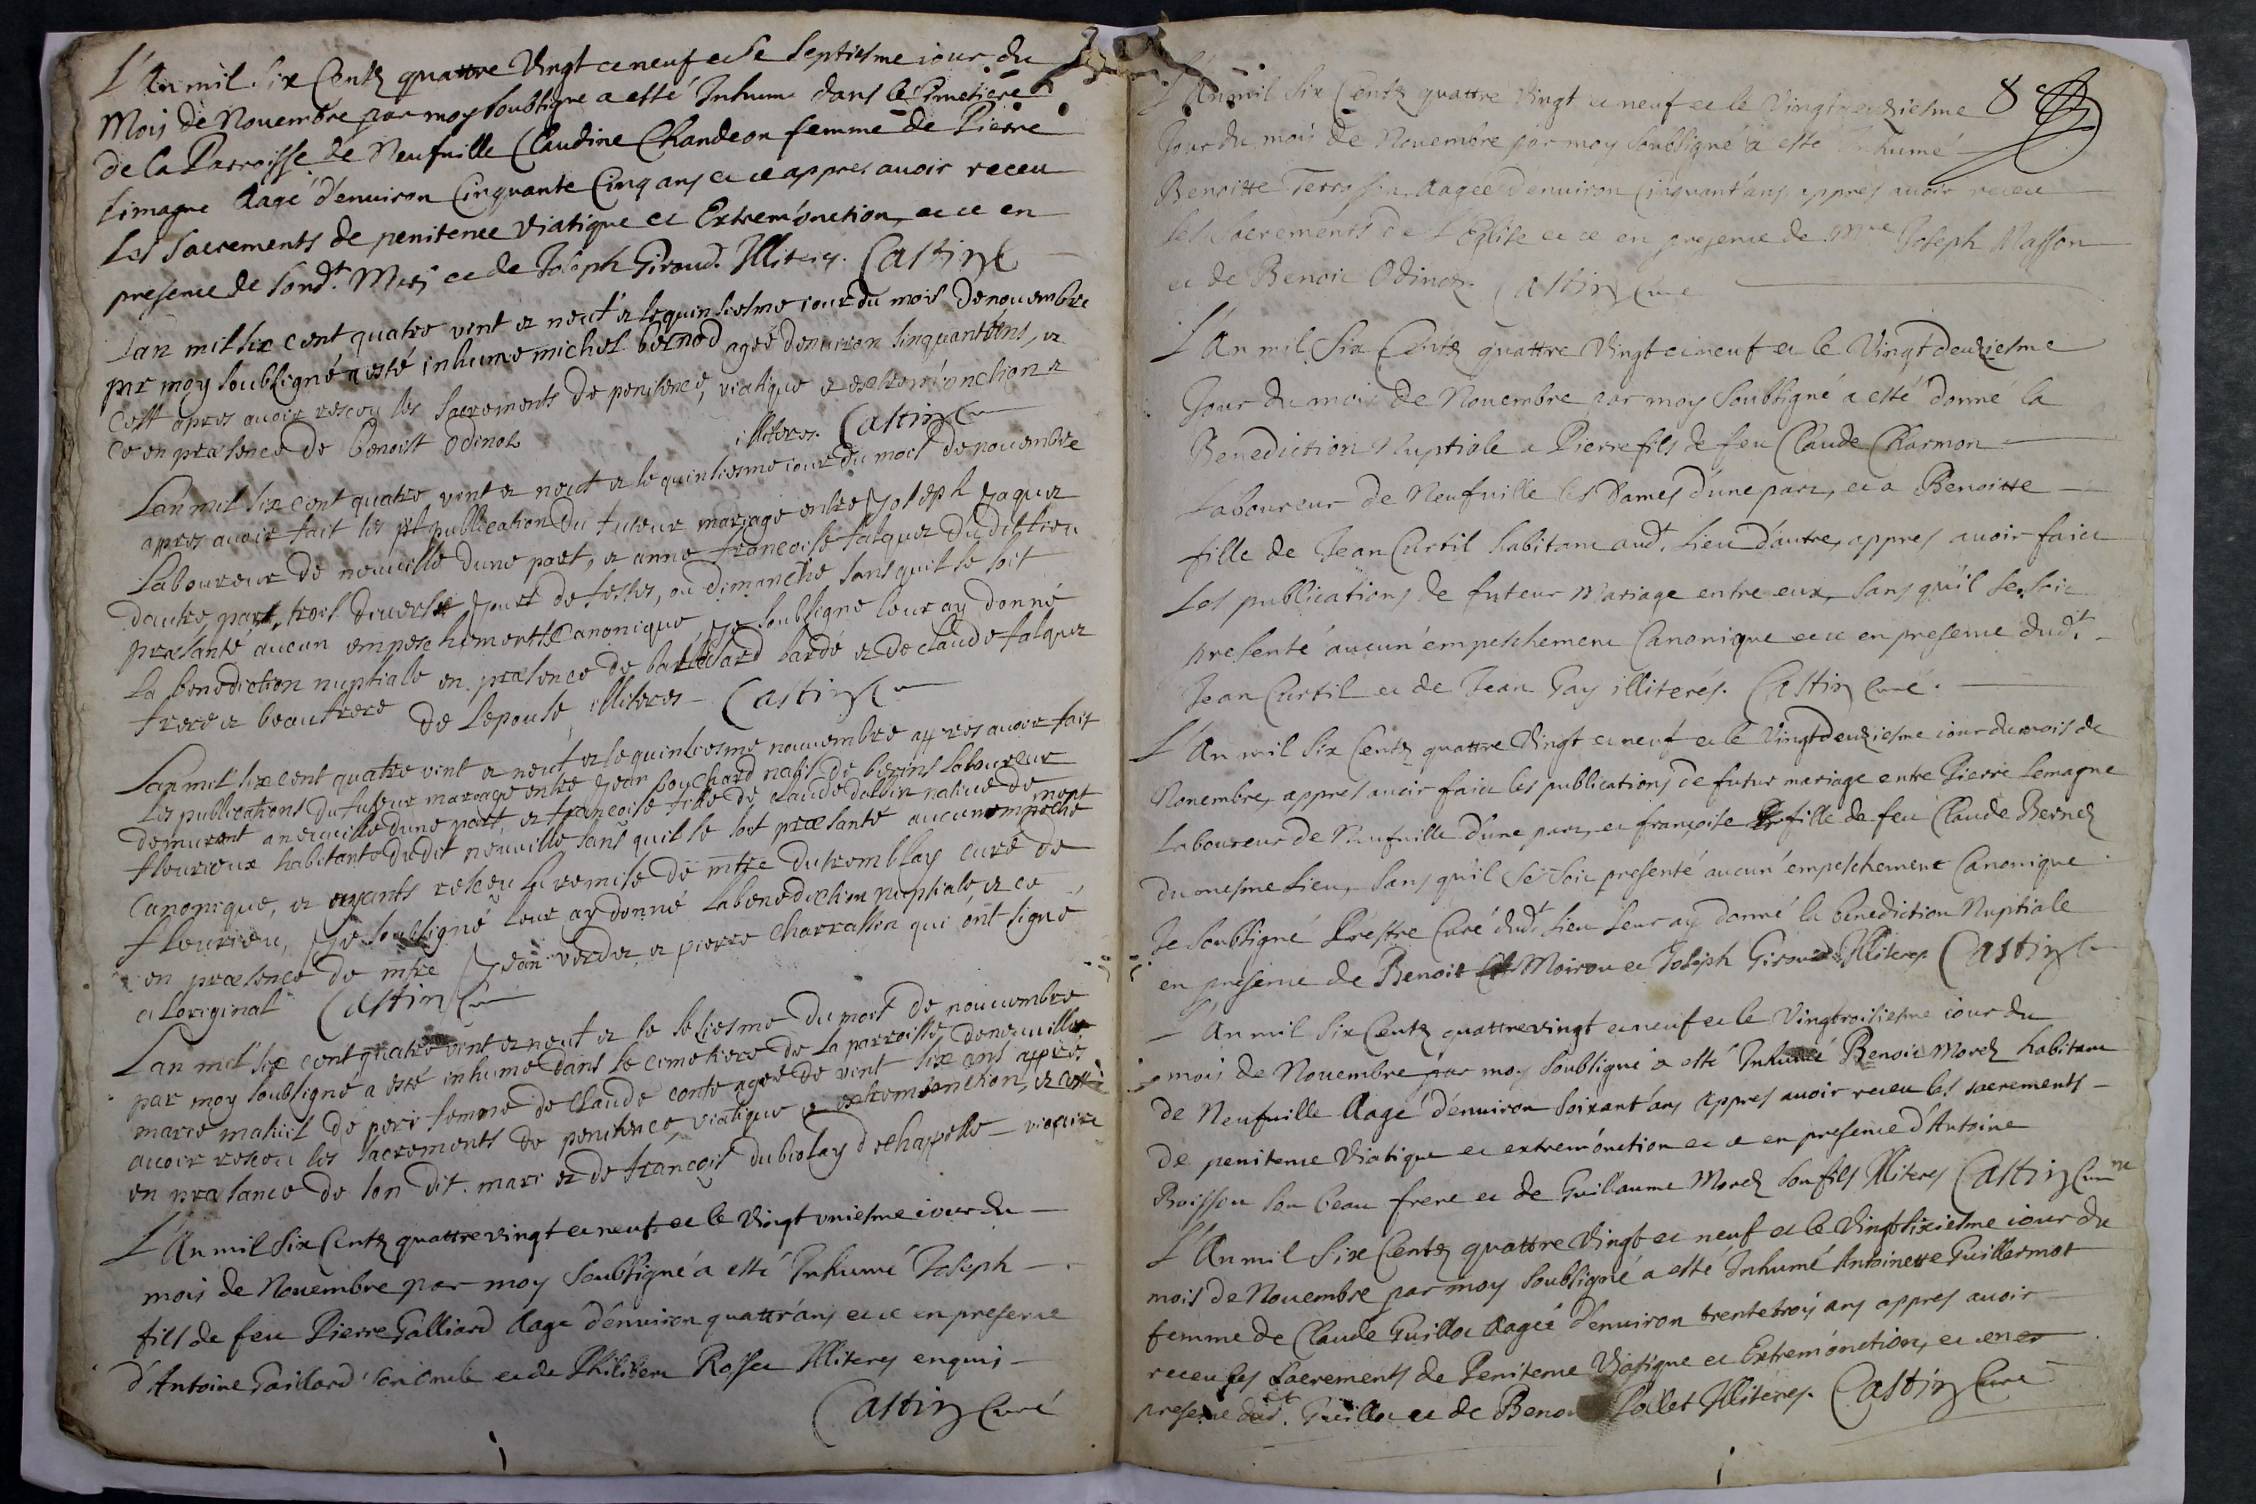 L'An mil Six Centz quattre Vingt et neuf et le Septiesme iour du
Mois de Nouembre par moy Soubsigné a esté Inhumé dans le Cimetiere
de la Parroisse de Neufuille Claudine Chandeon femme de Pierre
Limagne Aagé d'enuiron Cinquante Cinq ans et ce appres auoir receu
Les Sacrements de penitence Viatique et Extrem'onction, et ce en
presence de Sond.t Mari et de Joseph Giroud. Illiterés. Castin Curé
Lan mil six cent quatre vint et neuf et le quinsiesme iour du mois de nouembre
par moy soubsigné a esté inhumé michel bernod ageé denuiron sinquant'ans, et
cest apres auoir resceu les sacrements de penitence, viatique et extrem'onction et
ce en præsence de benoist odinet illiteres. Castin Curé
Lan mil six cent quatre vint et neuf et le quinsiesme iour du mois de nouembre
apres auoir fait les publication du futeur mariage entre Joseph Jaquet
Laboureur de neuuille dune part, et anne francoise falquet dudit lieu
dautre part, trois diuerse Jours de festes, ou dimanche, sans quil se soit
præsanté aucun empeschements Canonique Je soubsigné leur ay donné
La benediction nuptiale en præsence de bardé et de claude falquet
frere et beaufrere de Lepouse illiteres - Castin Curé
Lan mil six cent quatre vint et neuf et le quinsiesme nouuembre appres auoir fait
les publications du futeur mariage entre Jean souchard natif de laboureur
demurant a neuuille dune part, et francoise fille de claude natiue de
fleurieux habitante dudit neuuille sans quil se soit præsanté aucun empeche
Canonique, et ayants resceu la remise de mtre dutremblay curé de
fleurieu, Je soubsigné leur ay donné La benediction nuptiale et ce
en præsence de mtre Jean verdet et pierre charrassin qui ont signé
a Loriginal Castin Curé
Lan mil six cent quatre vint et neuf et le sesiesme du mois de nouuembre
par moy soubsigné a esté inhumé dans le cimetiere de La parroisse de neuuille
marie femme de claude conte ageé de vint six ans appres
auoir resceu les sacrements de penitence, viatique et extrem'onction, et cest
en præsance de son dit mari et de françois dubiolay dechappelle - vicaire
L'An mil Six Centz quattre vingt et neuf et le Vingt vniesme iour du
mois de Nouembre par moy Soubsigné a esté Inhumé Joseph
fils de feu Pierre Galliard Aagé d'enuiron quattr'ans et ce en presence
d'Antoine Gaillard son oncle et de Philibert Rosset Illiterés enquis
Castin Curé
8e
L'An mil Six Centz quattre Vingt et neuf et le Vingt deuxiesme
Jour du mois de Nouembre par moy Soubsigné a esté Inhumé
Benoitte Terrasson Aageé d'enuiron Cinquant'ans appres auoir receu
les Sacrements de L'Eglise et ce en presence de Mre Joseph Masson
et de Benoit Odinet. Castin Curé
L'An mil Six Centz quattre Vingt et neuf et le Vingt deuxiesme
Jour du mois de Nouembre par moy Soubsigné a esté donné la
Benediction Nuptiale a Pierre fils de feu Claude Charmon
Laboureur de Neufuille les Dames d'une part, et a Benoitte
fille de Jean Curtil habitant aud.t Lieu d'autre, appres auoir faict
Les publications de futeur Mariage entre eux, Sans qu'il Se soit
presenté aucun empeschement Canonique et ce en presence dud.t
Jean Curtil et de Jean Gay illiterés. Castin Curé.
L'An mil Six Centz quattre Vingt et neuf et le Vingt deuxiesme iour du mois de
Nouembre, appres auoir faict les publications de futur mariage entre Pierre Lemagne
Laboureur de Neufuille d'une part, et françoise fille de feu Claude Bernet
du mesme Lieu, Sans qu'il Se Soit presenté aucun empeschement Canonique
Je Soubsigné Prestre Curé dud.t Lieu Leur ay donné la benediction Nuptiale
en presence de Benoit Moirou et Joseph Giroud Illiterés Castin Curé
L'An mil Six Centz quattre vingt et neuf et le Vingtroisiesme iour du
mois de Nouembre par moy Soubsigné a esté Inhumé Benoit Morel habitant
de Neufuille Aagé d'enuiron Soixant'ans Appres auoir receu les sacrements
de penitence Viatique et extrem'onction et ce en presence d'Antoine
Boisson Son beau frere et de Guillaume Morel Son fils Illiterés Castin Curé
L'An mil Six Centz quattre Vingt et neuf et le Vingt Sixiesme iour du
mois de Nouembre par moy Soubsigné a esté Inhumé Antoinette Guillermot
femme de Claude Guillot Aageé d'enuiron trente trois ans appres auoir
receu les Sacrements de Penitence Viatique et Extrem'onction, et ce en
presence dud.t Guillot et de Benoit Pollet Illiterés. Castin Curé